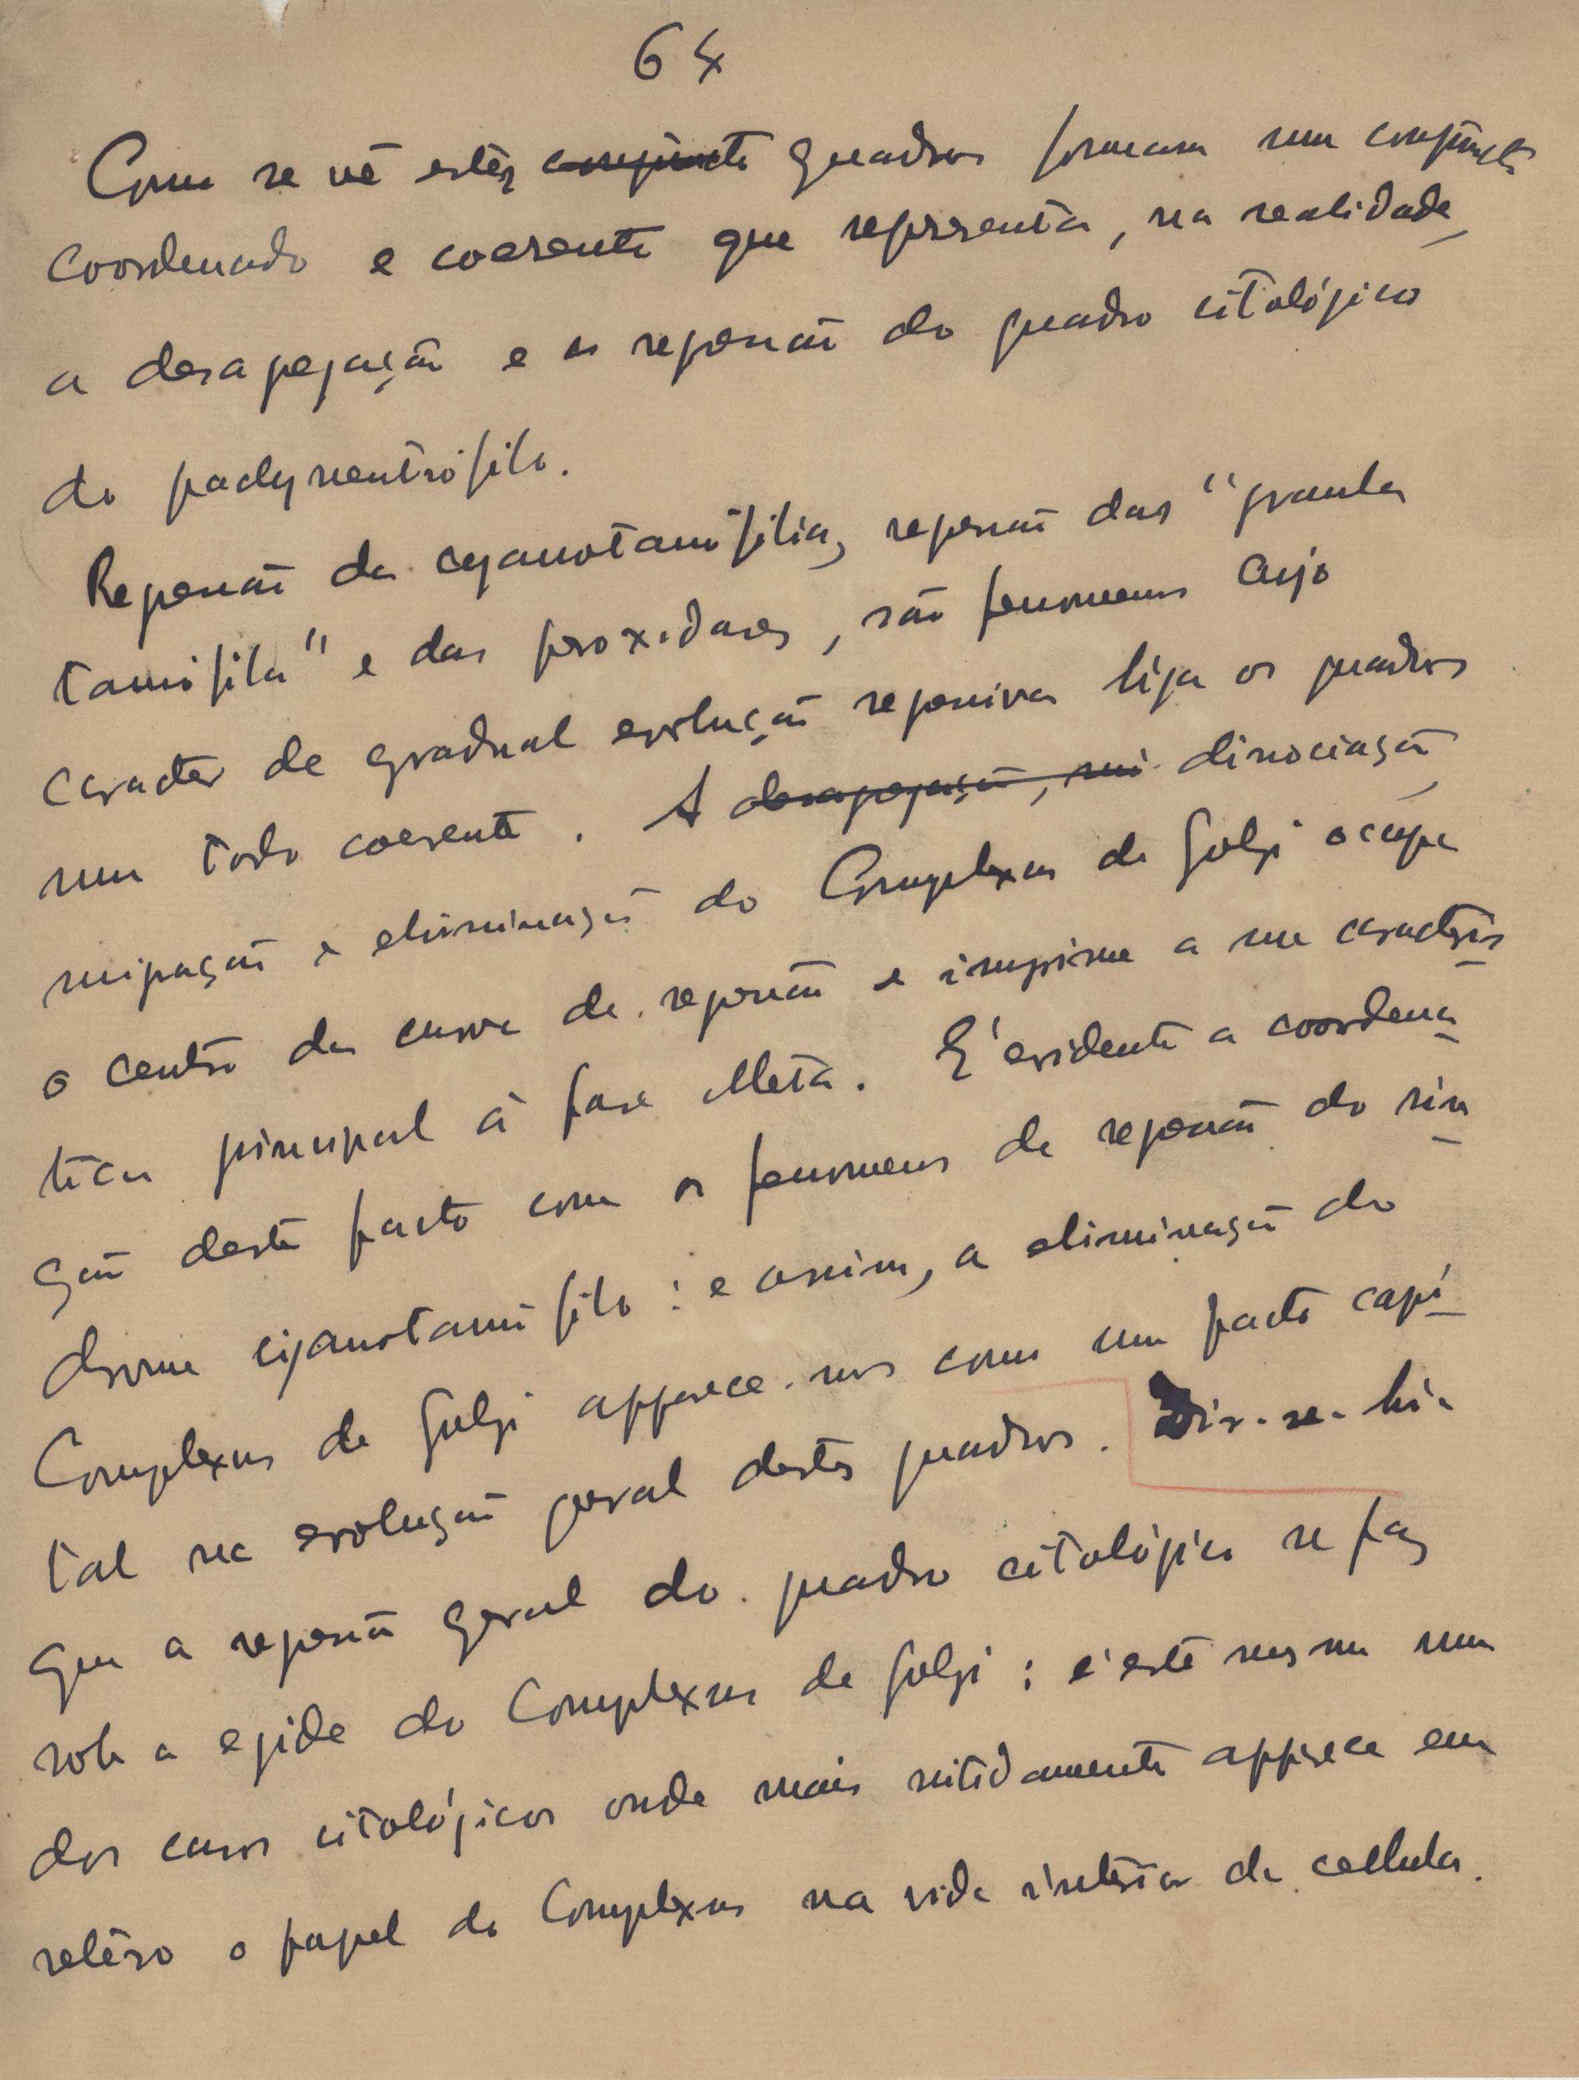 64
Como se vê estes conjuncto quadros formam um conjuncto
coordenado e coerente que representa, na realidade,
a desagregação e a regressão do quadro citológico
do pachyneutrófilo.
Regressão da cyanotaniofilia, regressão das "granula
taniofila" e das peroxidases, são fenomenos cujo
caracter de gradual evolução regressiva liga os quadros
num todo coerente. A desagregação, mi dissociação,
migração e eliminação do Complexus de Golgi occupa
o centro da curva de regressão e imprime a sua caracterís
tica principal á fase Meta. É evidente a coordena
ção deste facto com os fenomenos de regressão do sin
drome cijanotaniofilo: e assim, a eliminação do
Complexus de Golgi apparece-nos como um facto capi
tal na evolução geral destes quadros. Dir-se-hia
que a regressão geral do quadro citológico se faz
sob a egide do Complexus de Golgi: é este mesmo um
dos casos citológicos onde mais nitidamente apparece em
relêvo o papel do Complexus na vida interior da cellula.